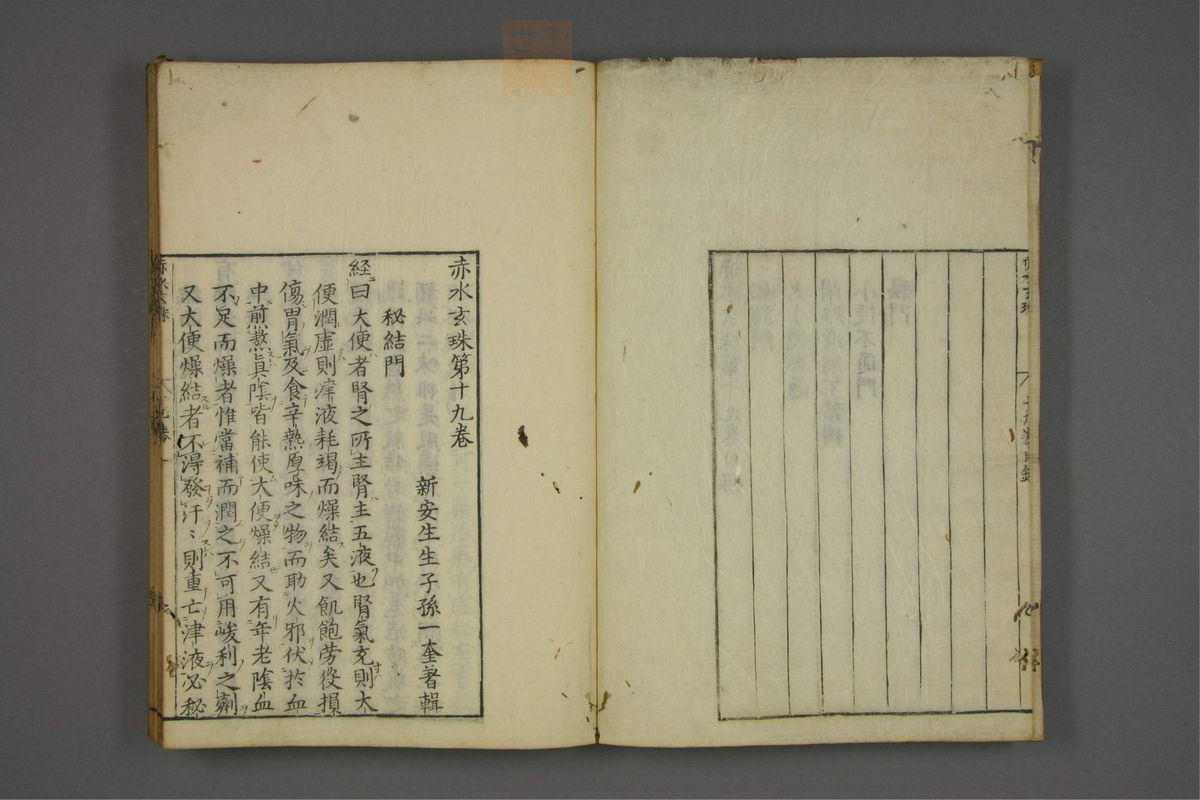 赤水玄珠第十九卷
新安生生子孫一奎著輯
秘結門
経曰大便者腎之所主腎主五液也腎氣充則大
便潤虛則津液耗竭而燥結矣又飢飽勞役損
傷胃氣及食辛熱厚味之物而助火邪伏於血
中煎熬真陰皆能使大便燥結又有年老陰血
不足而燥者惟當補而潤之不可用峻利之劑
又大便燥結者不得發汗〻則重亡津液必秘